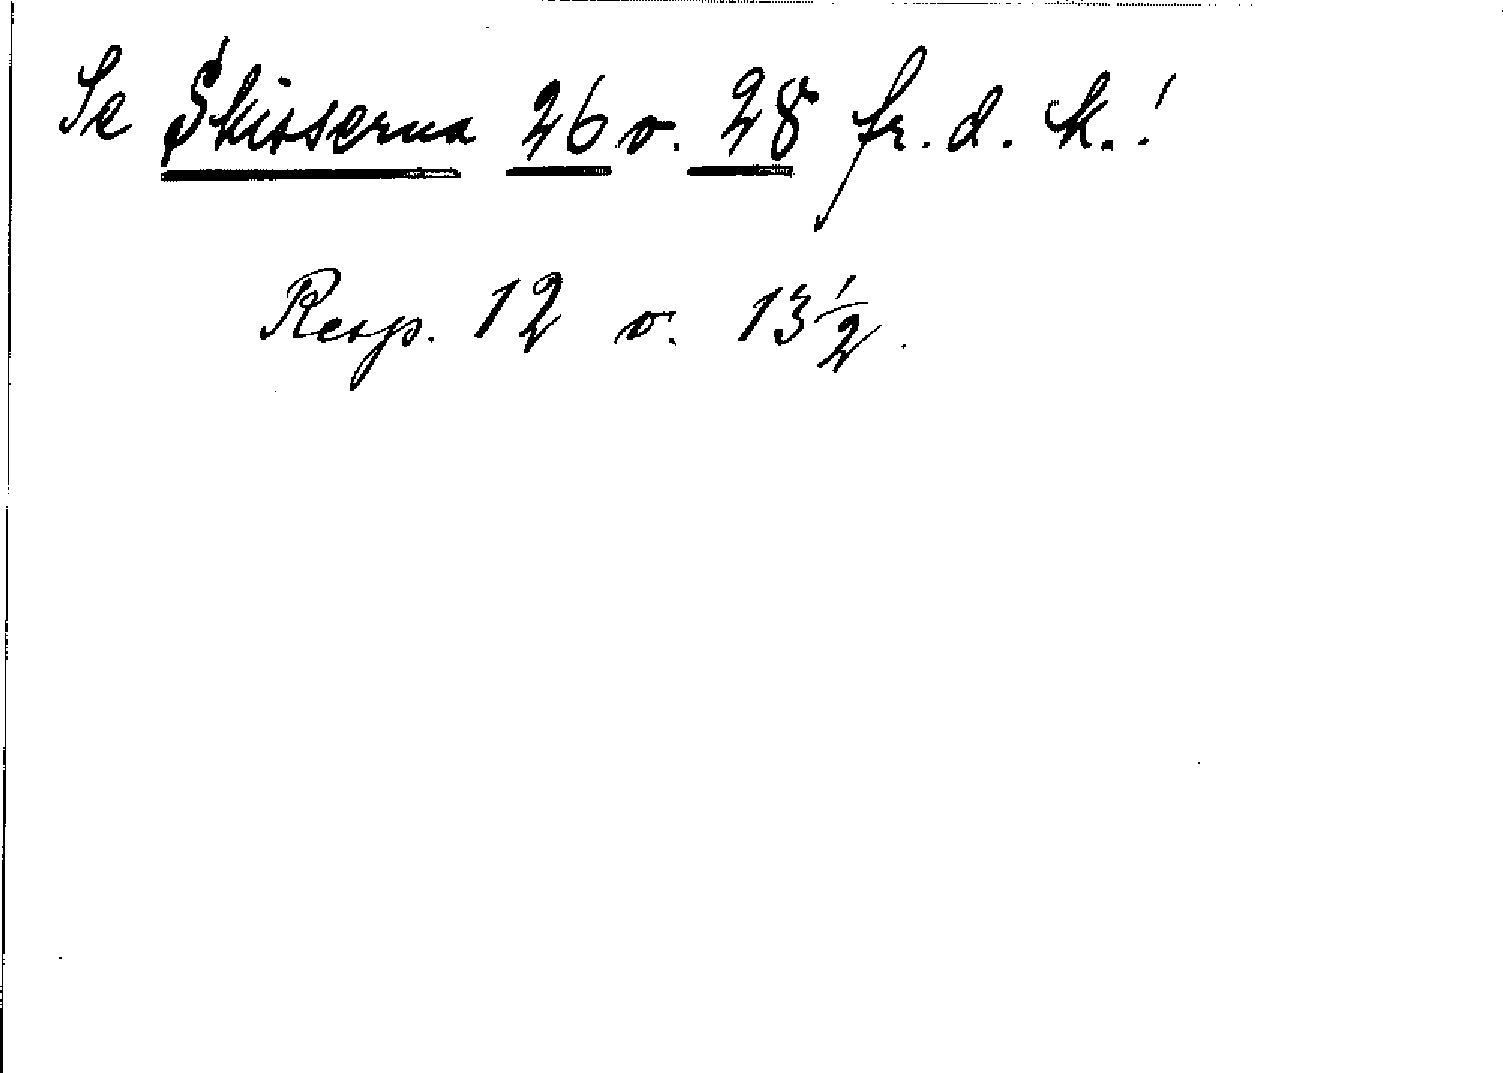 Se Skisserna 26 o. 28 fr. d. k.!
Resp. 12 o. 13 1/2.